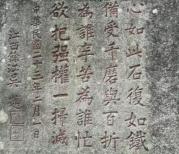 心如此石復如鐵
備受千磨與百折
為誰辛苦為誰忙
欲把强權一掃滅
中華民國二十三年二月一日